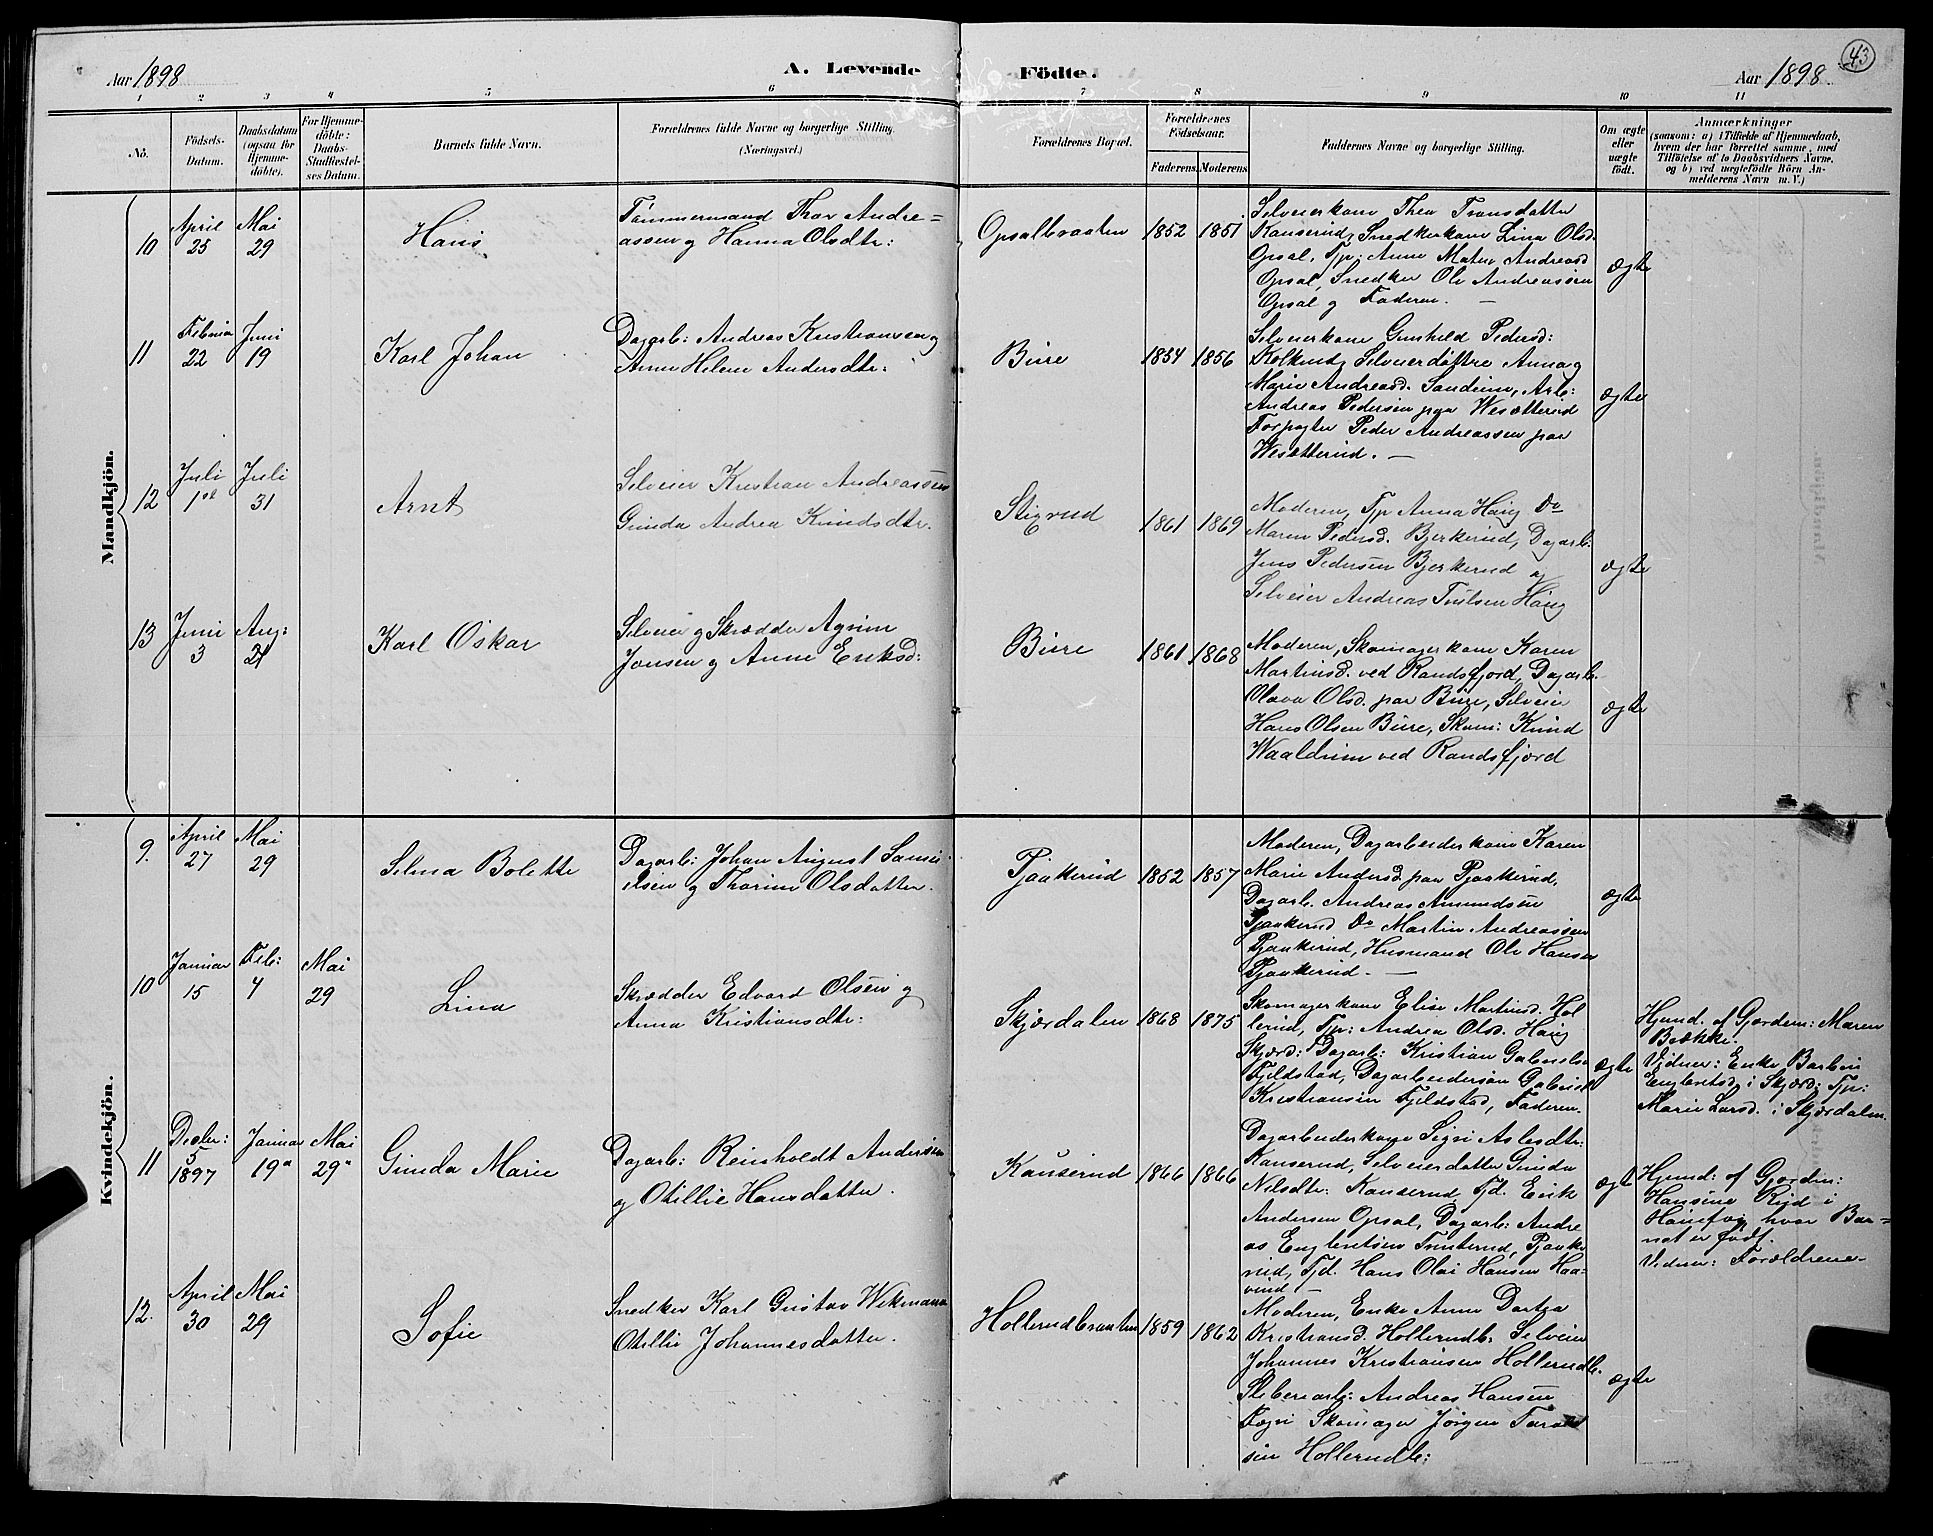 Aar 1898
A. Levende Födte.
Aar 1898
43
1 2 3 4 5 6 7 8 9 10 11
No.
Födsels-
Datum.
Daabsdatum
(ogsaa for
Hjemme-
döbte).
For Hjemme-
döbte:
Daabs-
Stadfæstel-
ses Datum.
Barnets fulde Navn.
Forældrenes fulde Navne og borgerlige Stilling.
(Næringsvei.)
Forældrenes Bopæl.
Forældrenes
Födselsaar.
Faderens. Moderens.
Faddernes Navne og borgerlige Stilling.
Om ægte
eller
uægte
födt.
Anmærkninger
(saasom: a) i Tilfælde af Hjemmedaab,
hvem der har forrettet samme, med
Tilföielse af to Daabsvidners Navne,
og b) ved uægtefödte Börn An-
melderens Navn m. V.)
Mandkjön.
10
April
25
Mai
29
Hans
Tømmermand Thor Andre=
assen og Hanna Olsdtr:
Opsalbraaten
1852
1851
Selveierkone Thea Tronsdatter
Kauserud, Snedkerkone Lina Olsd.
Opsal, Tjp: Anne Mathea Andreasd
Opsal, Snedker Ole Andreassen
Opsal og Faderen. —
ægte
11
Februar
22
Juni
19
Karl Johan
Dagarb: Andreas Kristiansen og
Anne Helene Andersdtr:
Bure
1854
1856
Selveierkone Gunhild Pedersd:
Selveierdøttre Anna og
Marie Andreasd. Arb:
Andreas Pedersen paa Wesætterud
Forpagter Peder Andreassen paa
Wesætterud. —
ægte
12
Juli
1ste
Juli
31
Arnt
Selveier Kristian Andreassen
Gunda Andrea Knudsdtr.
Stixrud
1861
1869
Moderen, Tjp Anna Haug Do
Maren Pedersd. Bjerkerud, Dagarb.
Jens Pedersen Bjerkerud og
Selveier Andreas Trulsen Haug
ægte
13
Juni
3
Aug:
21
Karl Oskar
Selveier og Skrædder Agrim
Jonsen og Anne Eriksd:
Bure
1861
1868
Moderen, Skomagerkone Karen
Martinsd. ved Randsfjord, Dagarb.
Olava Olsd. paa Bure, Selveier
Hans Olsen Bure, Skom: Knud
ved Randsfjord
ægte
Kvindekjön.
9.
April
27
Mai
29
Selma Bolette
Dagarb: Johan August Samu-
elsen og Thorine Olsdatter.
Pjaakerud
1852
1857
Moderen, Dagarbeiderkone Karen
Marie Andersd. paa Pjaakerud,
Dagarb. Andreas Amundsen
Pjaakerud Do Martin Andreassen
Pjaakerud, Husmand Ole Hansen
Pjaakerud. —
ægte
10
Januar
15
Feb:
4
Mai
29
Lina
Skrædder Edvard Olsen og
Anna Kristiansdtr:
Skjærdalen
1868
1875
Skomagerkone Elise Martinsd. Hol
lerud, Tjp: Andrea Olsd. Haug
Skjærd: Dagarb: Kristian Gabrielsen
Fjeldstad, Dagarbeidersøn Gabriel
Kristiansen Fjeldstad, Faderen.
ægte
Hjmd. af Gjordem: Maren
Bække.
Vidner: Enke Barbra
Engbretsd. i Skjærd: Tjp:
Marie Larsd. i Skjærdalen.
11
Decbr:
5
1897
Januar
19
Mai
29
Gunda Marie
Dagarb: Reinholdt Andersen
og Otillie Hansdatter.
Kauserud
1866
1866
Dagarbeiderkone Sigri Aslesdtr:
Kauserud, Selveierdatter Gunda
Nilsdtr: Kauserud, Tjd. Erik
Andersen Opsal, Dagarb: Andre
as Engbretsen Pjaake
rud, Tjd. Hans Olai Hansen Haa=
vind. —
ægte
Hjemd: af Gjordem:
Hansine Ryd i
Hønefos, hvor Bar=
net er født.
Vidner: Forældrene.
12.
April
30
Mai
29
Sofie
Snedker Karl Gustav Wikmann
Otillie Johannesdatter.
Hollerudbraaten
1859
1862
Moderen, Enke Anne Dortea
Kristiansd. Hollerudb: Selveier
Johannes Kristiansen Hollerudb.
Sliberiarb: Andreas Hansen
Skomager Jørgen
sen Hollerudb:
ægte